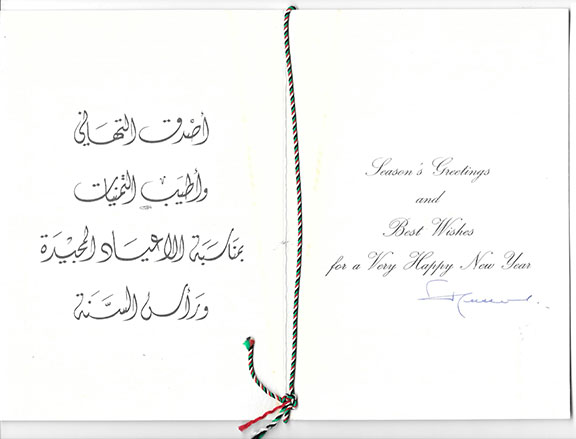 أصدق التهاني
وأطيب التمنيات
بمناسبة الاعياد المجيدة
ورأس السَّنة
Season's Greetings
and
Best Wishes
for a Very Happy New Year